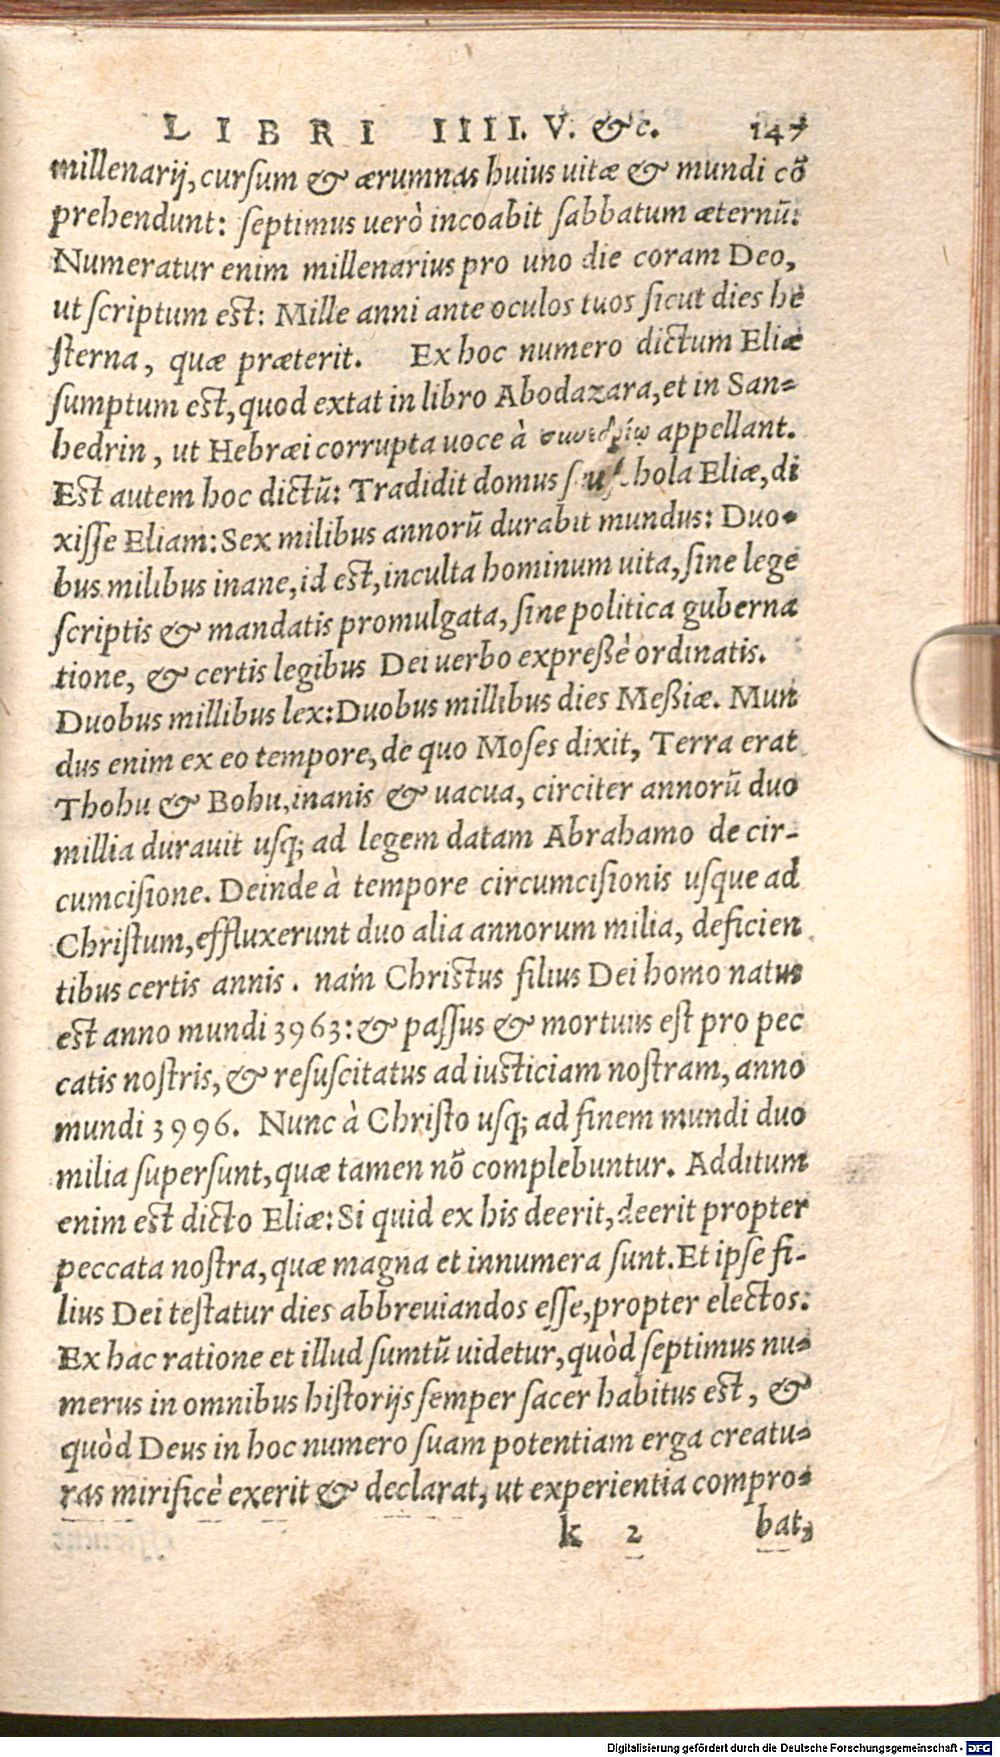 LIBRI IIII. V. &c. 147
millenarij, cursum & ærumnas huius uitæ & mundi cõ
prehendunt: septimus uerò incoabit sabbatum æternũ:
Numeratur enim millenarius pro uno die coram Deo,
ut scriptum est: Mille anni ante oculos tuos sicut dies he
sterna, quæ præterit. Ex hoc numero dictum Eliæ
sumptum est, quod extat in libro Abodazara, et in San=
hedrin, ut Hebræi corrupta uoce à συνεδρίω appellant.
Est autem hoc dictũ: Tradidit domus hola Eliæ, di
xisse Eliam: Sex milibus annorũ durabit mundus: Duo
bus milibus inane, id est, inculta hominum uita, sine lege
scriptis & mandatis promulgata, sine politica guberna
tione, & certis legibus Dei uerbo expreßè ordinatis.
Duobus millibus lex: Duobus millibus dies Meßiæ. Mun
dus enim ex eo tempore, de quo Moses dixit, Terra erat
Thohu & Bohu, inanis & uacua, circiter annorũ duo
millia durauit usq; ad legem datam Abrahamo de cir-
cumcisione. Deinde à tempore circumcisionis usque ad
Christum, effluxerunt duo alia annorum milia, deficien
tibus certis annis. nam Christus filius Dei homo natus
est anno mundi 3963: & passus & mortuus est pro pec
catis nostris, & resuscitatus ad iusticiam nostram, anno
mundi 3996. Nunc à Christo usq; ad finem mundi duo
milia supersunt, quæ tamen nõ complebuntur. Additum
enim est dicto Eliæ: Si quid ex his deerit, deerit propter
peccata nostra, quæ magna et innumera sunt. Et ipse fi-
lius Dei testatur dies abbreuiandos esse, propter electos.
Ex hac ratione et illud sumtũ uidetur, quòd septimus nu=
merus in omnibus historijs semper sacer habitus est, &
quòd Deus in hoc numero suam potentiam erga creatu=
ras mirificè exerit & declarat, ut experientia compro=
k 2 bat,
Digitalisierung gefördert durch die Deutsche Forschungsgemeinschaft - DFG